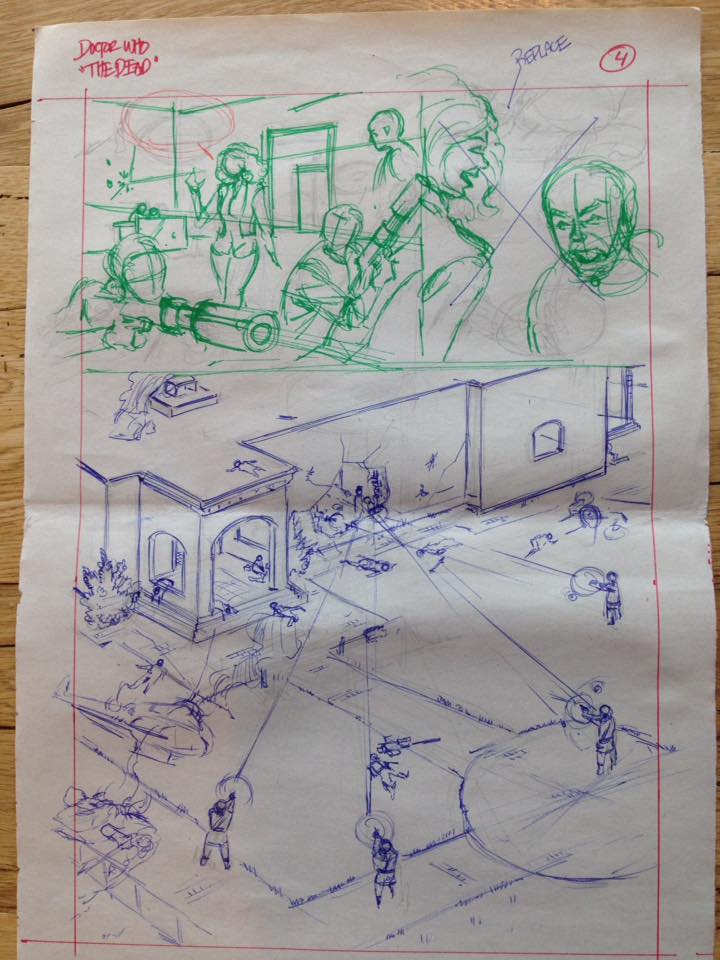 DOCTOR WHO
"THE DEAD"
REPLACE
4